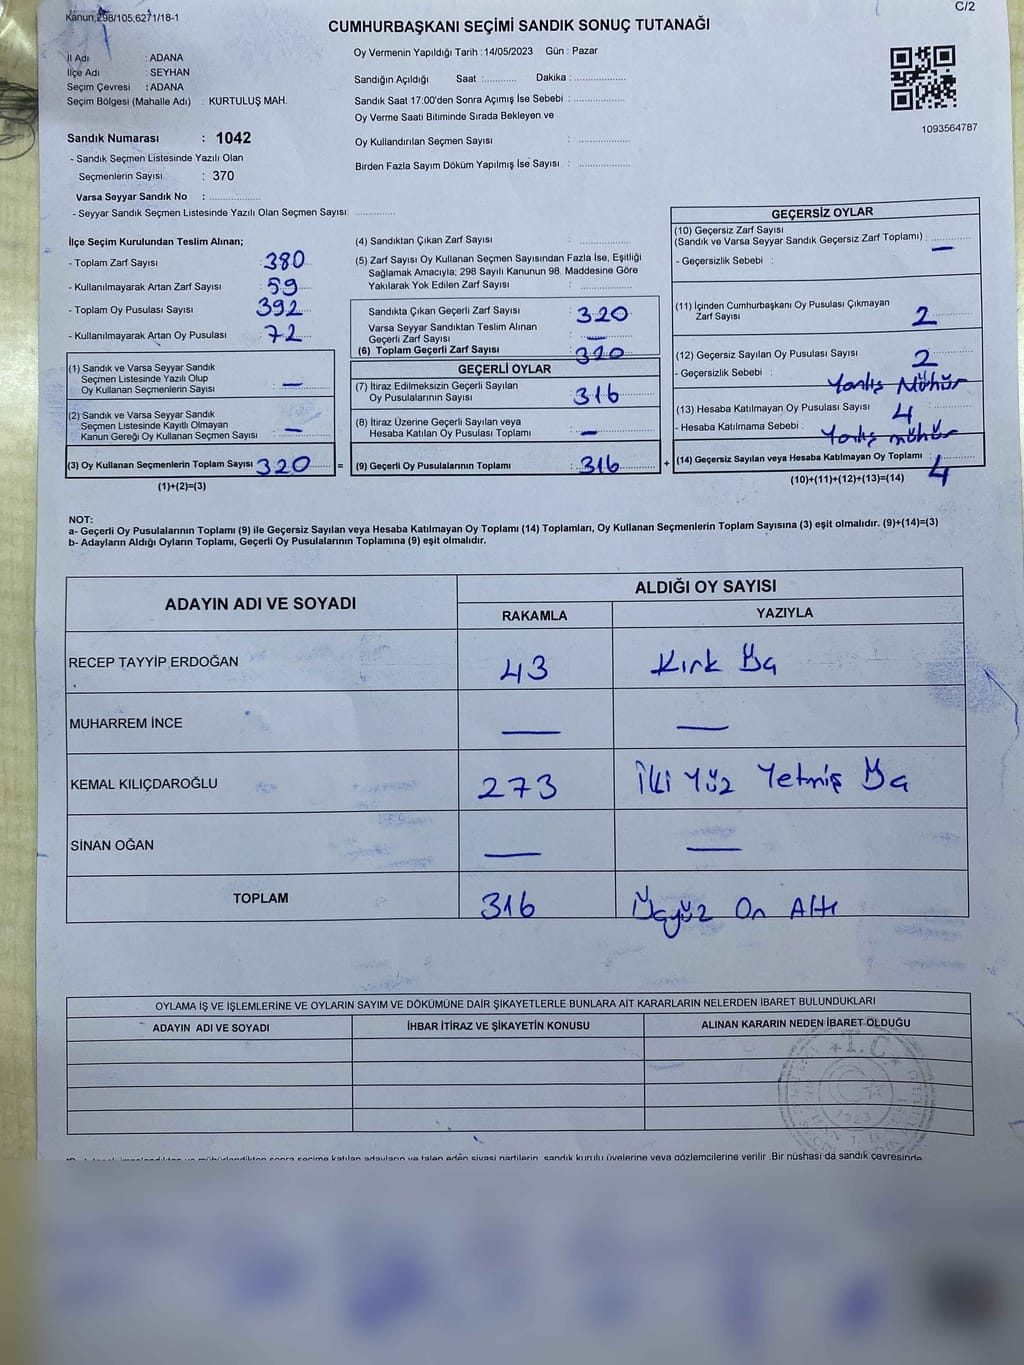 Kanun,298/105,6271/18-1
C/2
CUMHURBAŞKANI SEÇİMİ SANDIK SONUÇ TUTANAĞI
Oy Vermenin Yapıldığı Tarih : 14/05/2023 Gün : Pazar
İl Adı : ADANA
İlçe Adı : SEYHAN
Seçim Çevresi : ADANA
Seçim Bölgesi (Mahalle Adı) : KURTULUŞ MAH.
Sandığın Açıldığı Saat :............ Dakika : ....................
Sandık Saat 17:00'den Sonra Açımış İse Sebebi : ....................
Oy Verme Saati Bitiminde Sırada Bekleyen ve
Oy Kullandırılan Seçmen Sayısı : ....................
Birden Fazla Sayım Döküm Yapılmış İse Sayısı : ....................
1093564787
Sandık Numarası : 1042
- Sandık Seçmen Listesinde Yazılı Olan
Seçmenlerin Sayısı : 370
Varsa Seyyar Sandık No : ....................
- Seyyar Sandık Seçmen Listesinde Yazılı Olan Seçmen Sayısı: ...............
İlçe Seçim Kurulundan Teslim Alınan;
- Toplam Zarf Sayısı : 380
- Kullanılmayarak Artan Zarf Sayısı : 59
- Toplam Oy Pusulası Sayısı : 392
- Kullanılmayarak Artan Oy Pusulası : 72
(1) Sandık ve Varsa Seyyar Sandık
Seçmen Listesinde Yazılı Olup
Oy Kullanan Seçmenlerin Sayısı : —
(2) Sandık ve Varsa Seyyar Sandık
Seçmen Listesinde Kayıtlı Olmayan
Kanun Gereği Oy Kullanan Seçmen Sayısı : —
(3) Oy Kullanan Seçmenlerin Toplam Sayısı 320 =
(1)+(2)=(3)
(4) Sandıktan Çıkan Zarf Sayısı : ....................
(5) Zarf Sayısı Oy Kullanan Seçmen Sayısından Fazla İse, Eşitliği
Sağlamak Amacıyla; 298 Sayılı Kanunun 98. Maddesine Göre
Yakılarak Yok Edilen Zarf Sayısı : ....................
Sandıkta Çıkan Geçerli Zarf Sayısı : 320
Varsa Seyyar Sandıktan Teslim Alınan
Geçerli Zarf Sayısı : —
(6) Toplam Geçerli Zarf Sayısı : 320
GEÇERLİ OYLAR
(7) İtiraz Edilmeksizin Geçerli Sayılan
Oy Pusulalarının Sayısı : 316
(8) İtiraz Üzerine Geçerli Sayılan veya
Hesaba Katılan Oy Pusulası Toplamı : —
(9) Geçerli Oy Pusulalarının Toplamı : 316 +
GEÇERSİZ OYLAR
(10) Geçersiz Zarf Sayısı
(Sandık ve Varsa Seyyar Sandık Geçersiz Zarf Toplamı) : —
- Geçersizlik Sebebi :
(11) İçinden Cumhurbaşkanı Oy Pusulası Çıkmayan
Zarf Sayısı : 2
(12) Geçersiz Sayılan Oy Pusulası Sayısı : 2
- Geçersizlik Sebebi : Yanlış Mühür
(13) Hesaba Katılmayan Oy Pusulası Sayısı : 4
- Hesaba Katılmama Sebebi : Yanlış mühür
(14) Geçersiz Sayılan veya Hesaba Katılmayan Oy Toplamı : 4
(10)+(11)+(12)+(13)=(14)
NOT:
a- Geçerli Oy Pusulalarının Toplamı (9) ile Geçersiz Sayılan veya Hesaba Katılmayan Oy Toplamı (14) Toplamları, Oy Kullanan Seçmenlerin Toplam Sayısına (3) eşit olmalıdır. (9)+(14)=(3)
b- Adayların Aldığı Oyların Toplamı, Geçerli Oy Pusulalarının Toplamına (9) eşit olmalıdır.
ADAYIN ADI VE SOYADI ALDIĞI OY SAYISI
RAKAMLA YAZIYLA
RECEP TAYYİP ERDOĞAN 43 Kırk Üç
MUHARREM İNCE — —
KEMAL KILIÇDAROĞLU 273 İki Yüz Yetmiş Üç
SİNAN OĞAN — —
TOPLAM 316 Üçyüz On Altı
OYLAMA İŞ VE İŞLEMLERİNE VE OYLARIN SAYIM VE DÖKÜMÜNE DAİR ŞİKAYETLERLE BUNLARA AİT KARARLARIN NELERDEN İBARET BULUNDUKLARI
ADAYIN ADI VE SOYADI İHBAR İTİRAZ VE ŞİKAYETİN KONUSU ALINAN KARARIN NEDEN İBARET OLDUĞU
T.C.
1923
sonra seçime katılan adayların ve talep eden siyasi partilerin, sandık kurulu üyelerine veya gözlemcilerine verilir .Bir nüshası da sandık çevresinde